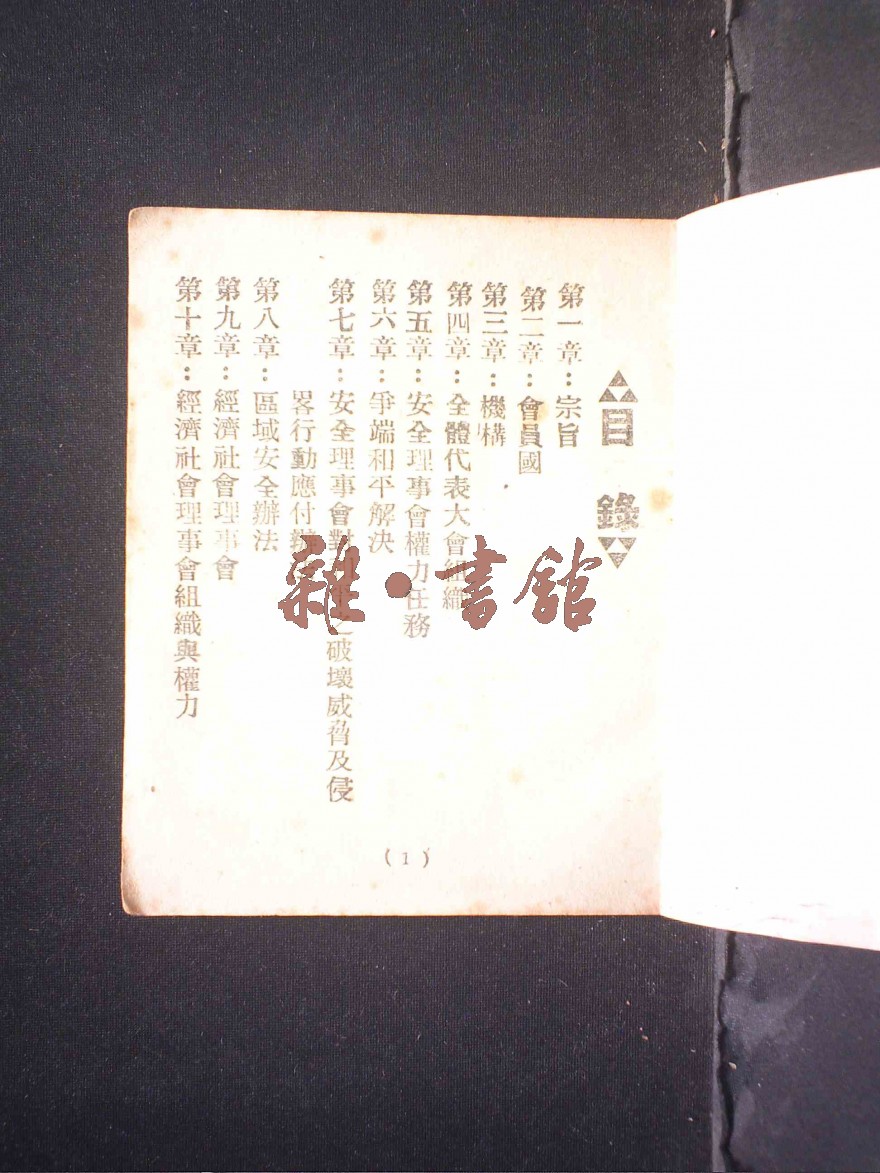 目錄
第一章：宗旨
第二章：會員國
第三章：機構
第四章：全體代表大會組織
第五章：安全理事會權力任務
第六章：爭端和平解決
第七章：安全理事會對之破壞威脅及侵
畧行動應付辦
第八章：區域安全辦法
第九章：經濟社會理事會
第十章：經濟社會理事會組織與權力
(1)
雜·書館